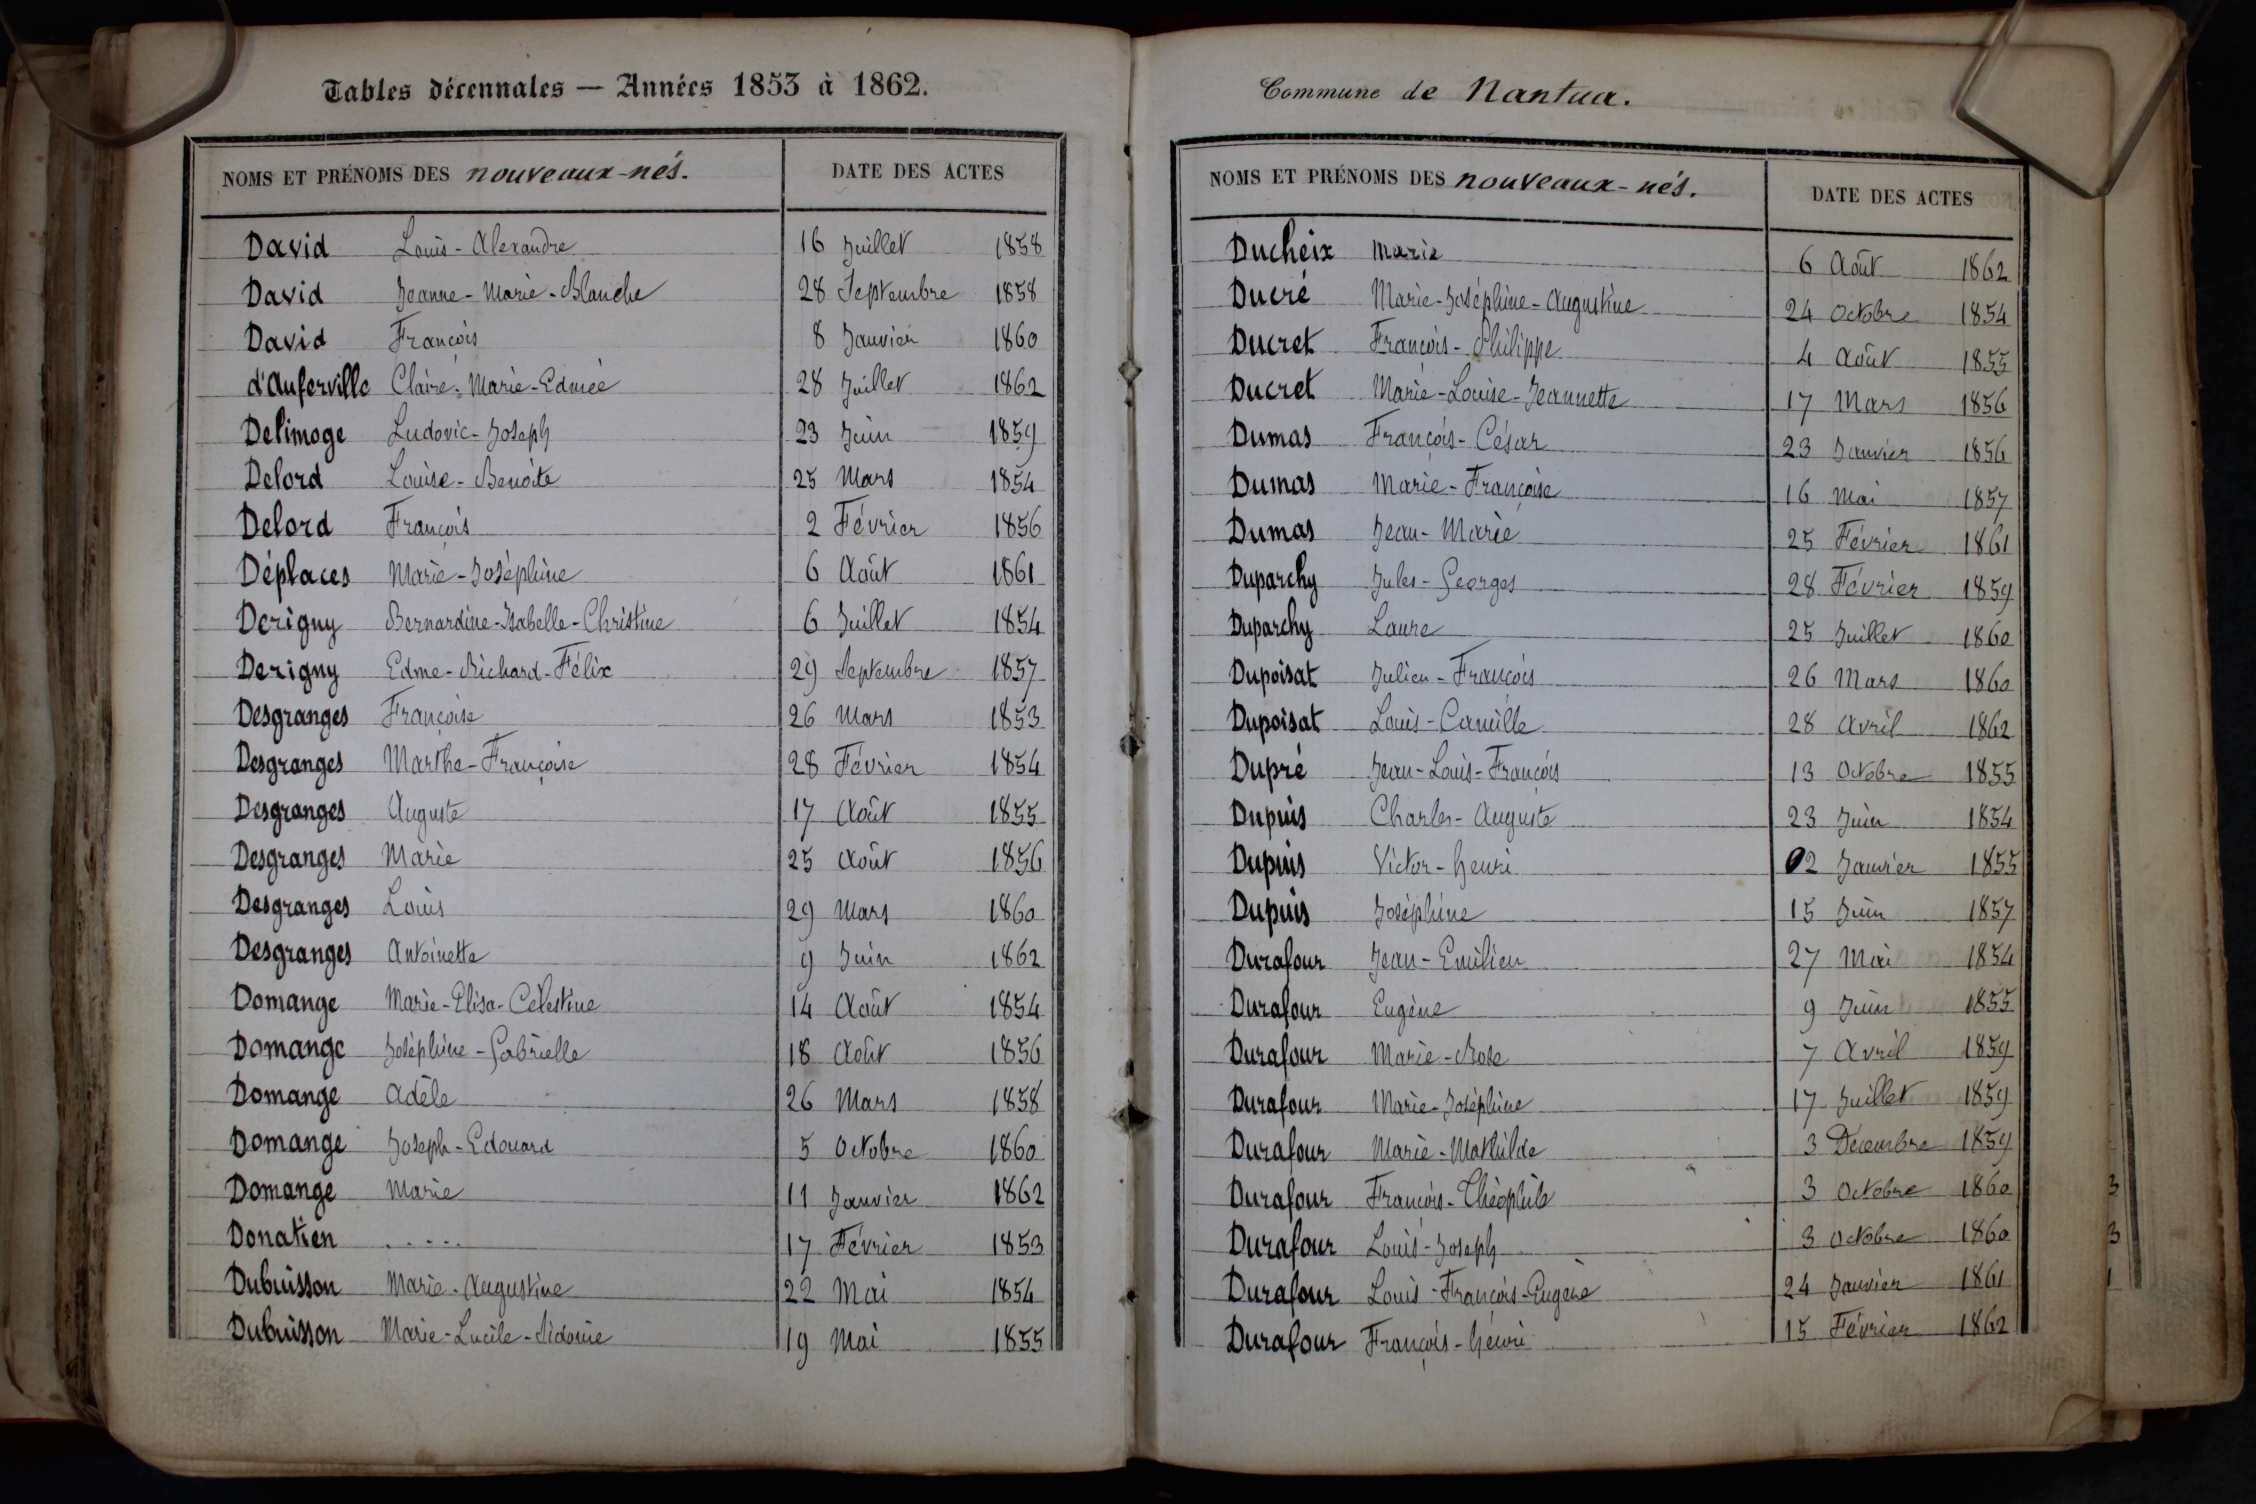 Tables décennales — Années 1853 à 1862.
NOMS ET PRÉNOMS DES nouveaux-nés. DATE DES ACTES
David Louis-Alexandre 16 Juillet 1858
David Jeanne-Marie-Blanche 28 Septembre 1858
David François 8 Janvier 1860
d'Auferville Claire-Marie-Edmée 28 Juillet 1862
Delimoge Ludovic-Joseph 23 Juin 1859
Delord Louise-Benoite 25 Mars 1854
Delord François 2 Février 1856
Déplaces Marie-Joséphine 6 Août 1861
Derigny Bernardine-Isabelle-Christine 6 Juillet 1854
Derigny Edme-Richard-Félix 29 Septembre 1857
Desgranges Françoise 26 Mars 1853
Desgranges Marthe-Françoise 28 Février 1854
Desgranges Auguste 17 Août 1855
Desgranges Marie 25 Août 1856
Desgranges Louis 29 Mars 1860
Desgranges Antoinette 9 Juin 1862
Domange Marie-Elisa-Célestine 14 Août 1854
Domange Joséphine-Gabrielle 18 Août 1856
Domange Adèle 26 Mars 1858
Domange Joseph-Edouard 5 Octobre 1860
Domange Marie 11 Janvier 1862
Donatien ..... 17 Février 1853
Dubuisson Marie-Augustine 22 Mai 1854
Dubuisson Marie-Lucile-Sidonie 19 Mai 1855
Commune de Nantua.
NOMS ET PRÉNOMS DES nouveaux-nés. DATE DES ACTES
Ducheix Marie 6 Août 1862
Ducré Marie-Joséphine-Augustine 24 Octobre 1854
Ducret François-Philippe 4 Août 1855
Ducret Marie-Louise-Jeannette 17 Mars 1856
Dumas François-César 23 Janvier 1856
Dumas Marie-Françoise 16 Mai 1857
Dumas Jean-Marie 25 Février 1861
Duparchy Jules-Georges 28 Février 1859
Duparchy Laure 25 Juillet 1860
Dupoisat Julien-François 26 Mars 1860
Dupoisat Louis-Camille 28 Avril 1862
Dupré Jean-Louis-François 13 Octobre 1855
Dupuis Charles-Auguste 23 Juin 1854
Dupuis Victor-Henri 2 Janvier 1855
Dupuis Joséphine 15 Juin 1857
Durafour Jean-Emilien 27 Mai 1854
Durafour Eugène 9 Juin 1855
Durafour Marie-Rose 7 Avril 1859
Durafour Marie-Joséphine 17 Juillet 1859
Durafour Marie-Mathilde 3 Décembre 1859
Durafour François-Théophile 3 Octobre 1860
Durafour Louis-Joseph 3 Octobre 1860
Durafour Louis-François-Eugène 24 Janvier 1861
Durafour François-Henri 15 Février 1862
3
3
1